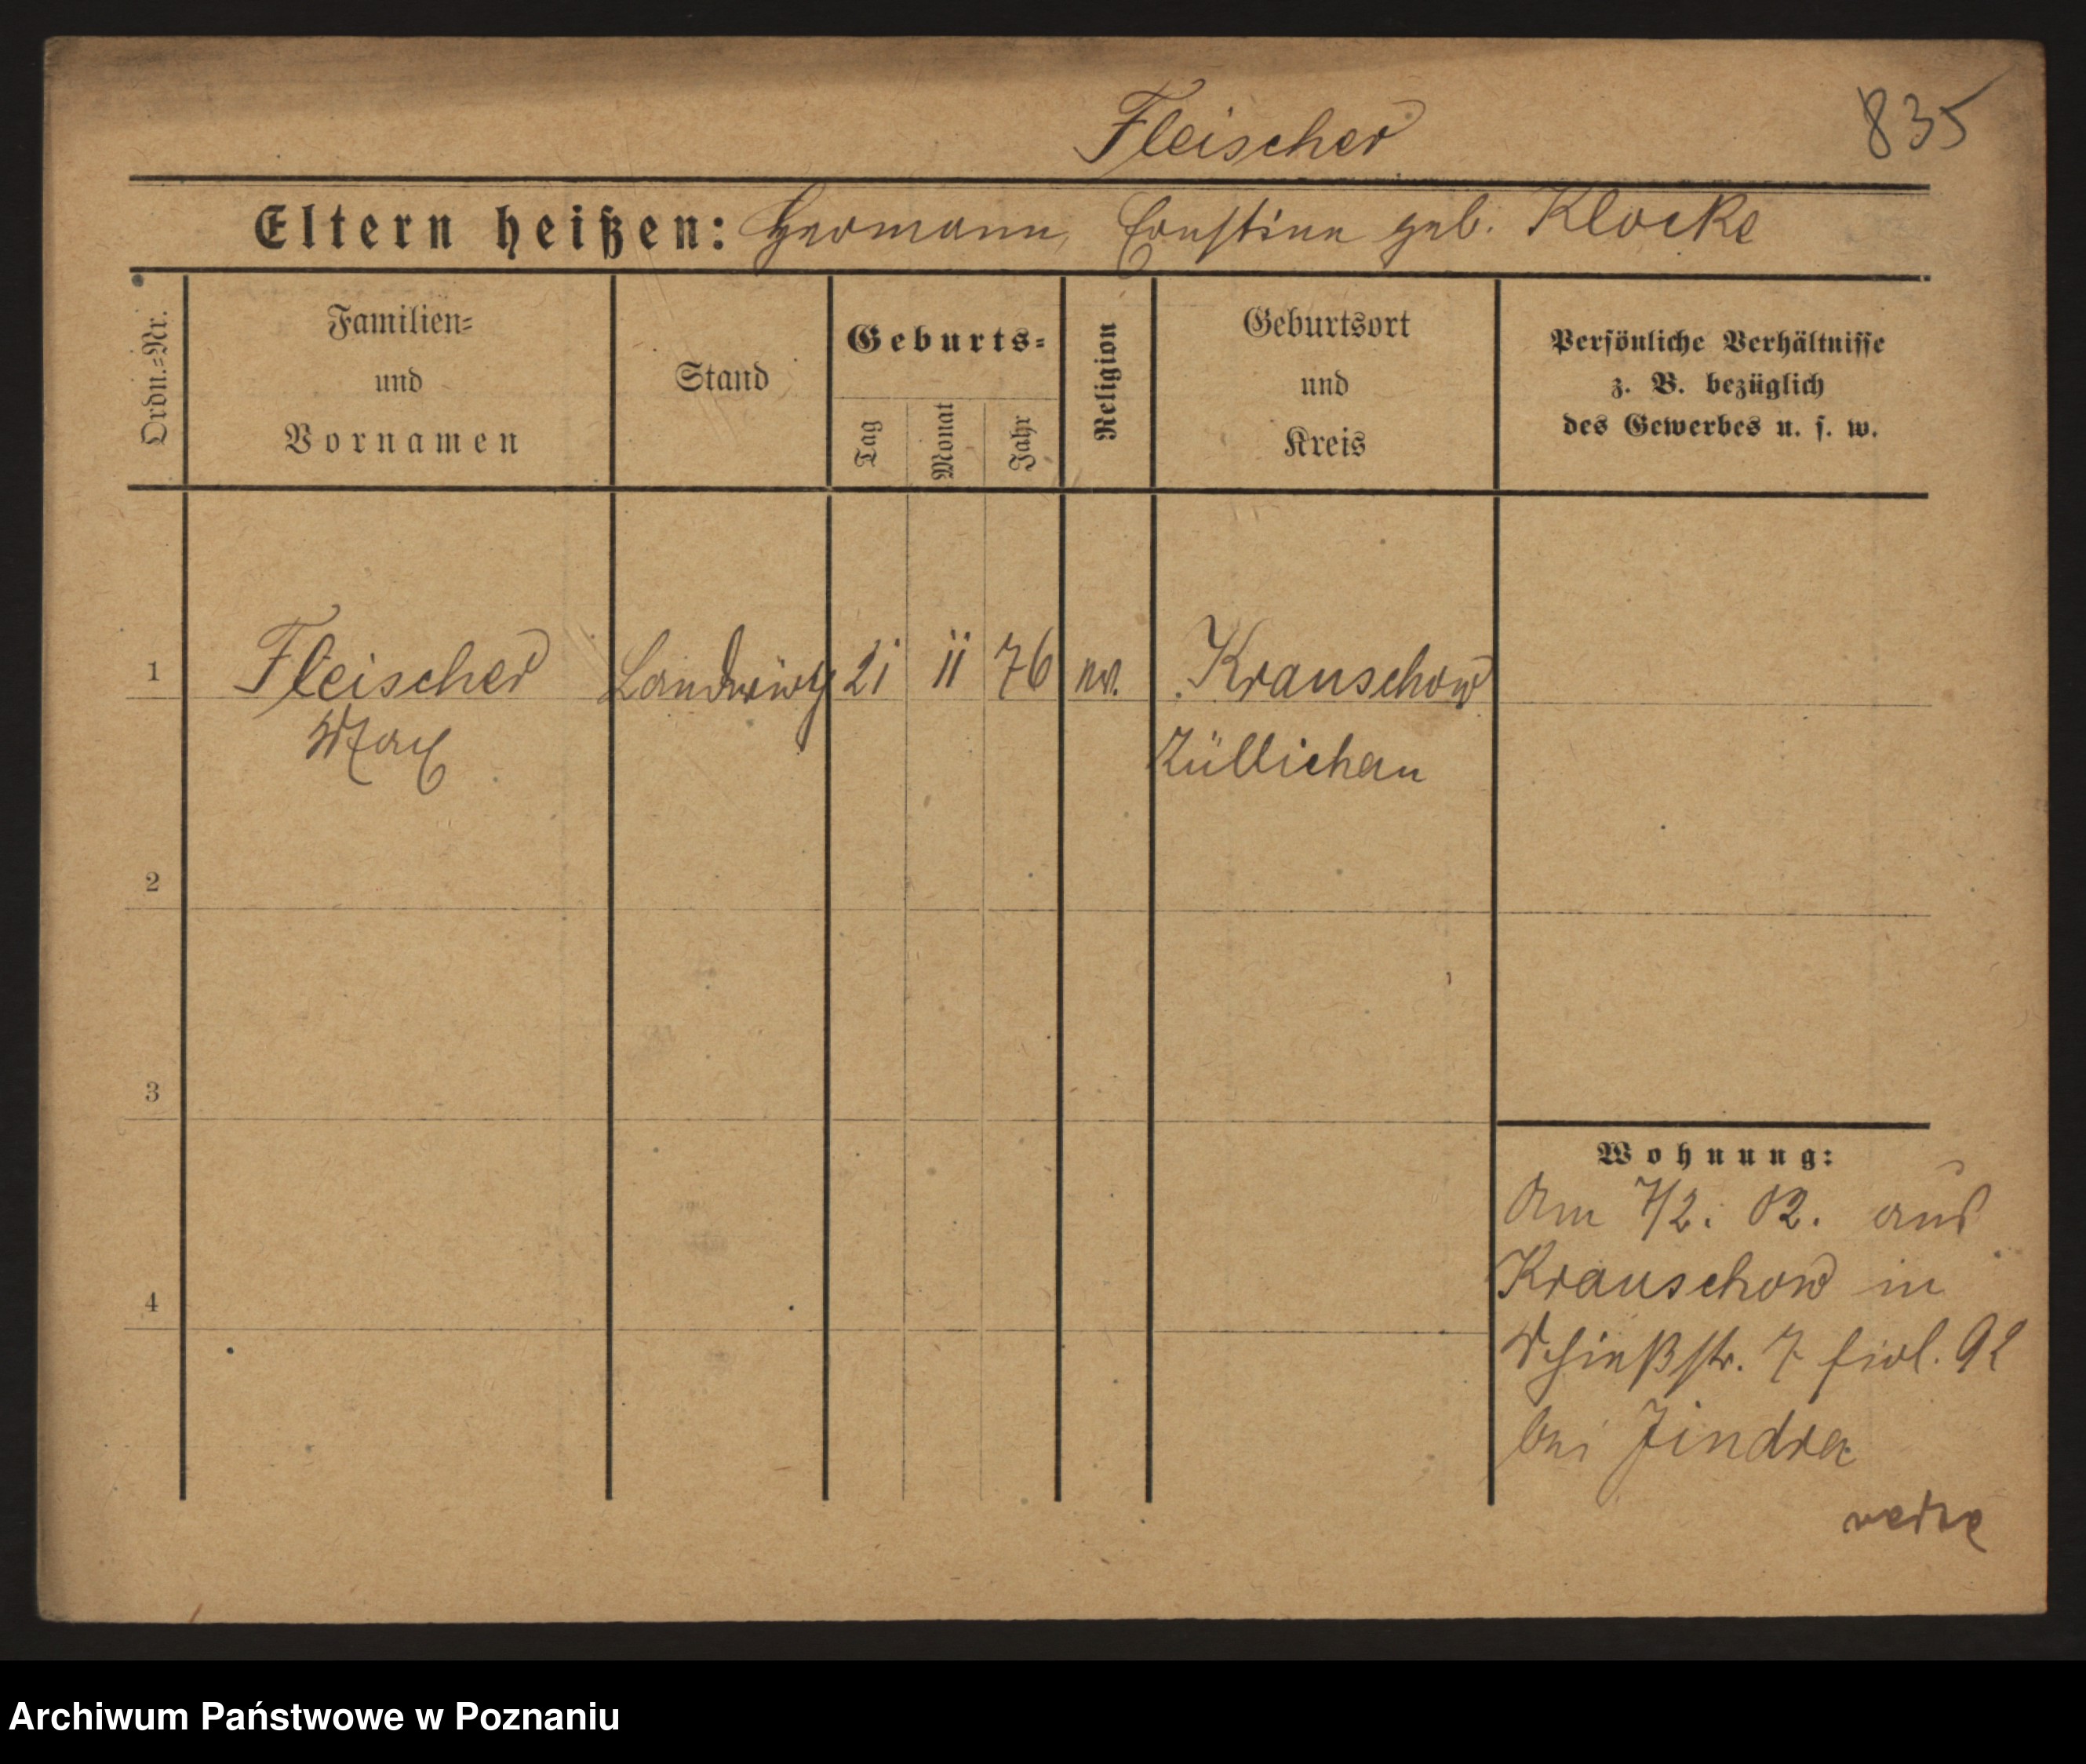 Fleischer
835
Eltern heißen: Hermann, Ernstine geb. Klocke
Ordn.-Nr.
Familien-
und
Vornamen
Stand
Geburts-
Tag
Monat
Jahr
Religion
Geburtsort
und
Kreis
Persönliche Verhältnisse
z. B. bezüglich
des Gewerbes u. s. w.
1
Fleischer Landwirth 21 11 76 ev. Krauschow
Max
Züllichau
2
3
4
Wohnung:
Am 7/2. 02. aus
Krauschow in
7
bei Jindra
Archiwum Państwowe w Poznaniu